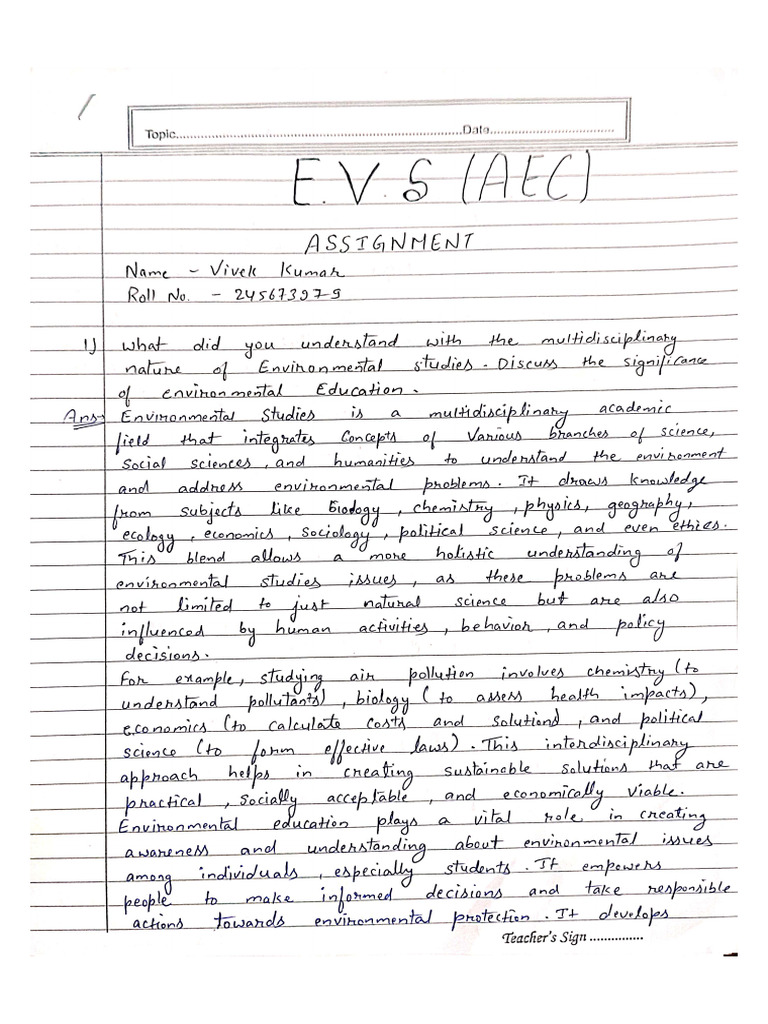 Topic.....................................................................Date...............................
E.V.S (AEC)
ASSIGNMENT
Name - Vivek Kumar
Roll No. - 245673979
1) What did you understand with the multidisciplinary
nature of Environmental studies. Discuss the significance
of environmental Education.
Ans Environmental Studies is a multidisciplinary academic
field that integrates Concepts of Various branches of science,
Social sciences, and humanities to understand the environment
and address environmental problems. It draws knowledge
from subjects like Biology, chemistry, physics, geography,
ecology, economics, sociology, political science, and even ethics.
This blend allows a more holistic understanding of
environmental studies issues, as these problems are
not limited to just natural science but are also
influenced by human activities, behavior, and policy
decisions.
For example, studying air pollution involves chemistry (to
understand pollutants), biology (to assess health impacts),
economics (to calculate costs and solution), and political
science (to form effective laws). This interdisciplinary
approach helps in creating sustainable solutions that are
practical, Socially acceptable, and economically viable.
Environmental education plays a vital role in creating
awareness and understanding about environmental issues
among individuals, especially students. It empowers
people to make informed decisions and take responsible
actions towards environmental protection. It develops
Teacher's Sign ...............